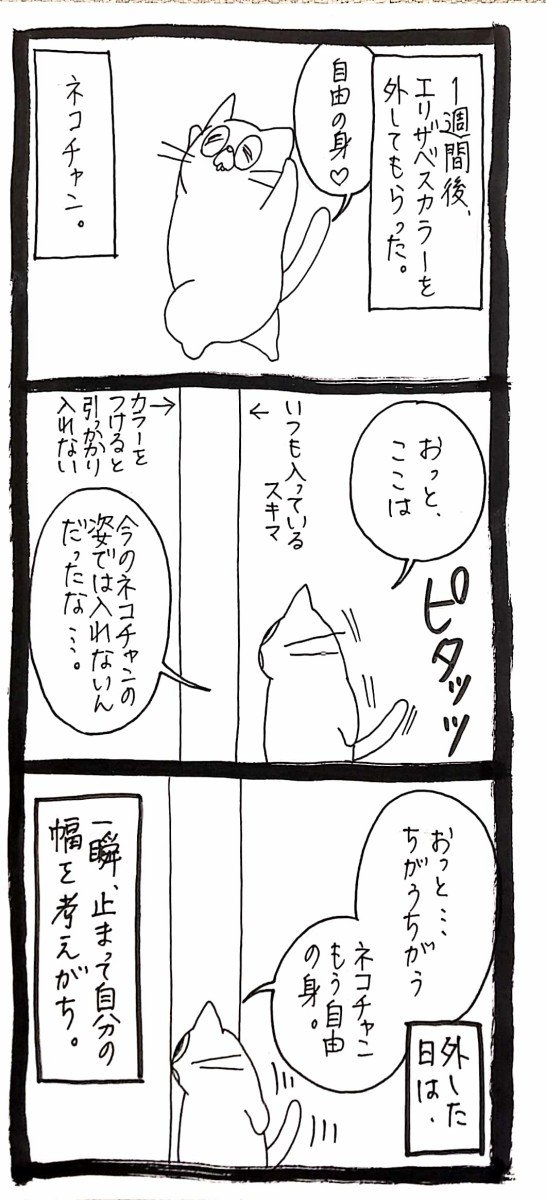 1週間後、
エリザベスカラーを
外してもらった。
自由の身♡
ネコチャン。
おっと、
ここは
ピタッッ
いつも入っている
スキマ
←
→
カラーを
つけると
引っかかり
入れない
今のネコチャンの
姿では入れないん
だったな…。
おっと…
ちがうちがう
ネコチャン
もう自由
の身。
外した
日は、
一瞬、止まって自分の
幅を考えがち。